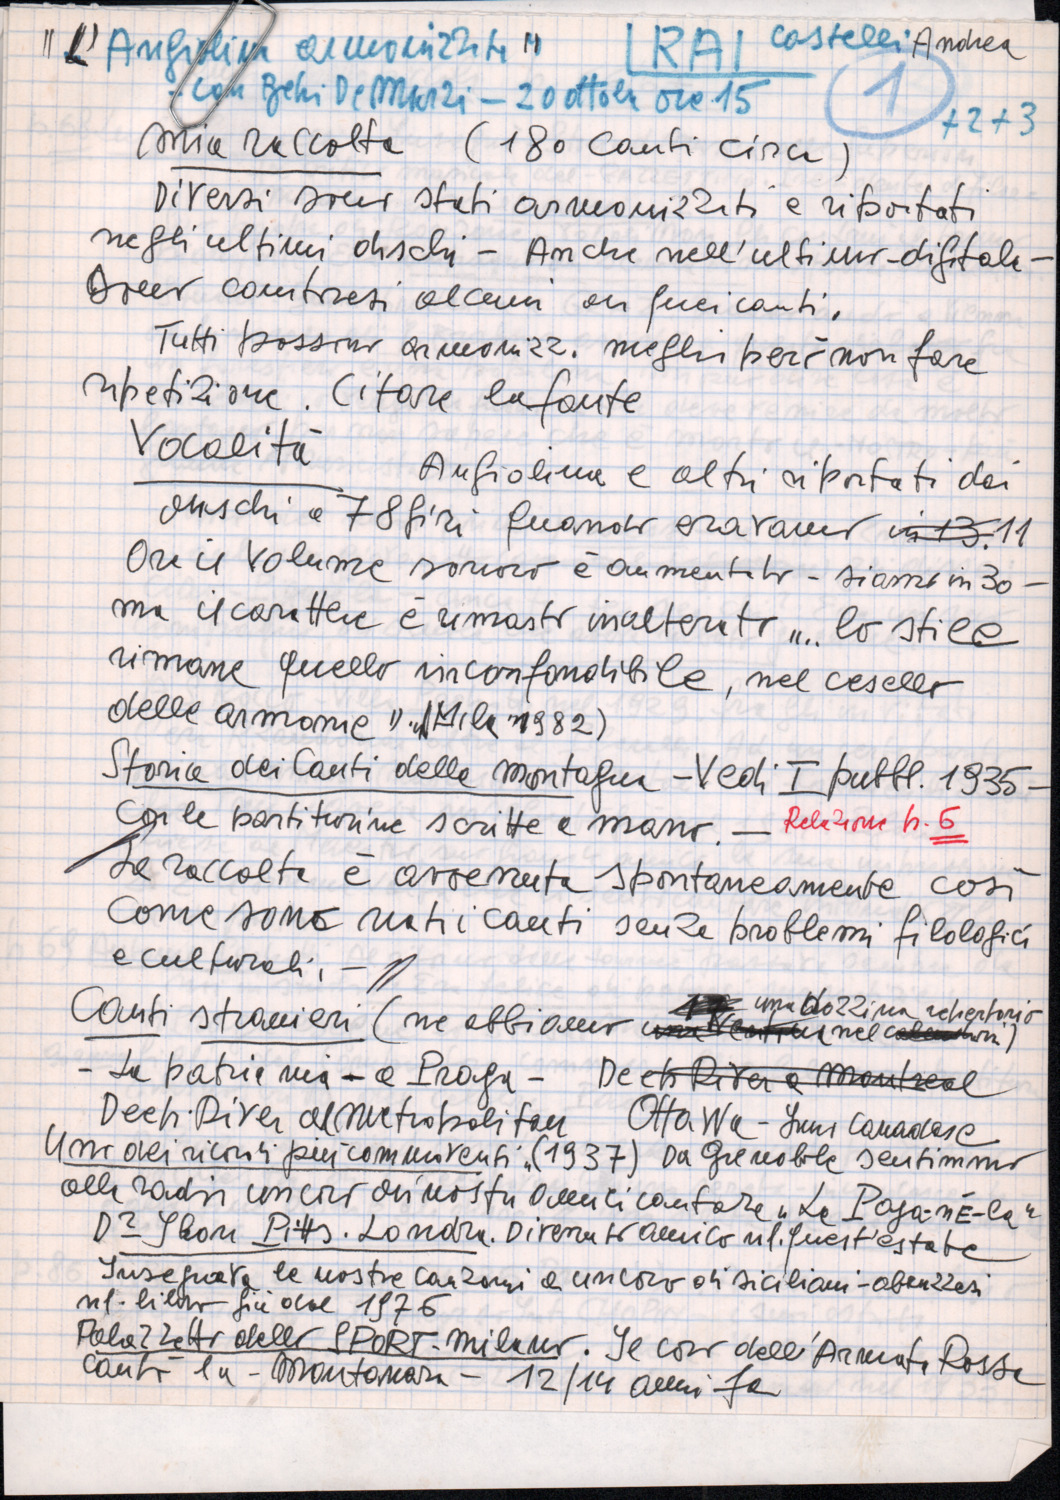 "L'Angiolina armonizzata" RAI Castelli Andrea
con Bepi De Marzi – 20 ottobre ore 15 1 +2+3
Mia raccolta (180 canti circa)
Diversi sono stati armonizzati e riportati
negli ultimi dischi – Anche nell'ultimo digitale –
sono contrasi alcuni di quei canti.
Tutti possono armonizz. meglio però non fare
ripetizione. Citare la fonte
Vocalità Angiolina e altri riportati dai
dischi a 78 giri quando eravamo in 13. 11
Ora il volume sonoro è aumentato – siamo in 30 –
ma il carattere è rimasto inalterato "... lo stile
rimane quello inconfondibile, nel cesello
delle armonie". (Mila 1982)
Storia dei Canti della montagna – Vedi I pubbl. 1935 –
con le partiturine scritte a mano. — Relazione p. 5
La raccolta è avvenuta spontaneamente così
come sono nati i canti senza problemi filologici
e culturali. –
Canti stranieri (ne abbiamo una dozzina nel repertorio)
– La patria mia – a Praga – Deep River a Montreal
Deep River al Metropolitan Ottawa – Inno Canadese
Uno dei ricordi più commoventi "(1937) Da Grenoble sentimmo
alla radio un coro di nostri amici cantare "La Paga-nÉ-la"
Dr Ihon Pitts. Londra. Divenuto amico ns. quest'estate
Insegnava le nostre canzoni a un coro di siciliani-abruzzesi
ns. libro già dal 1976
Palazzetto dello SPORT-Milano. Il coro dell'Armata Rossa
cantò la – Montanara – 12/14 anni fa